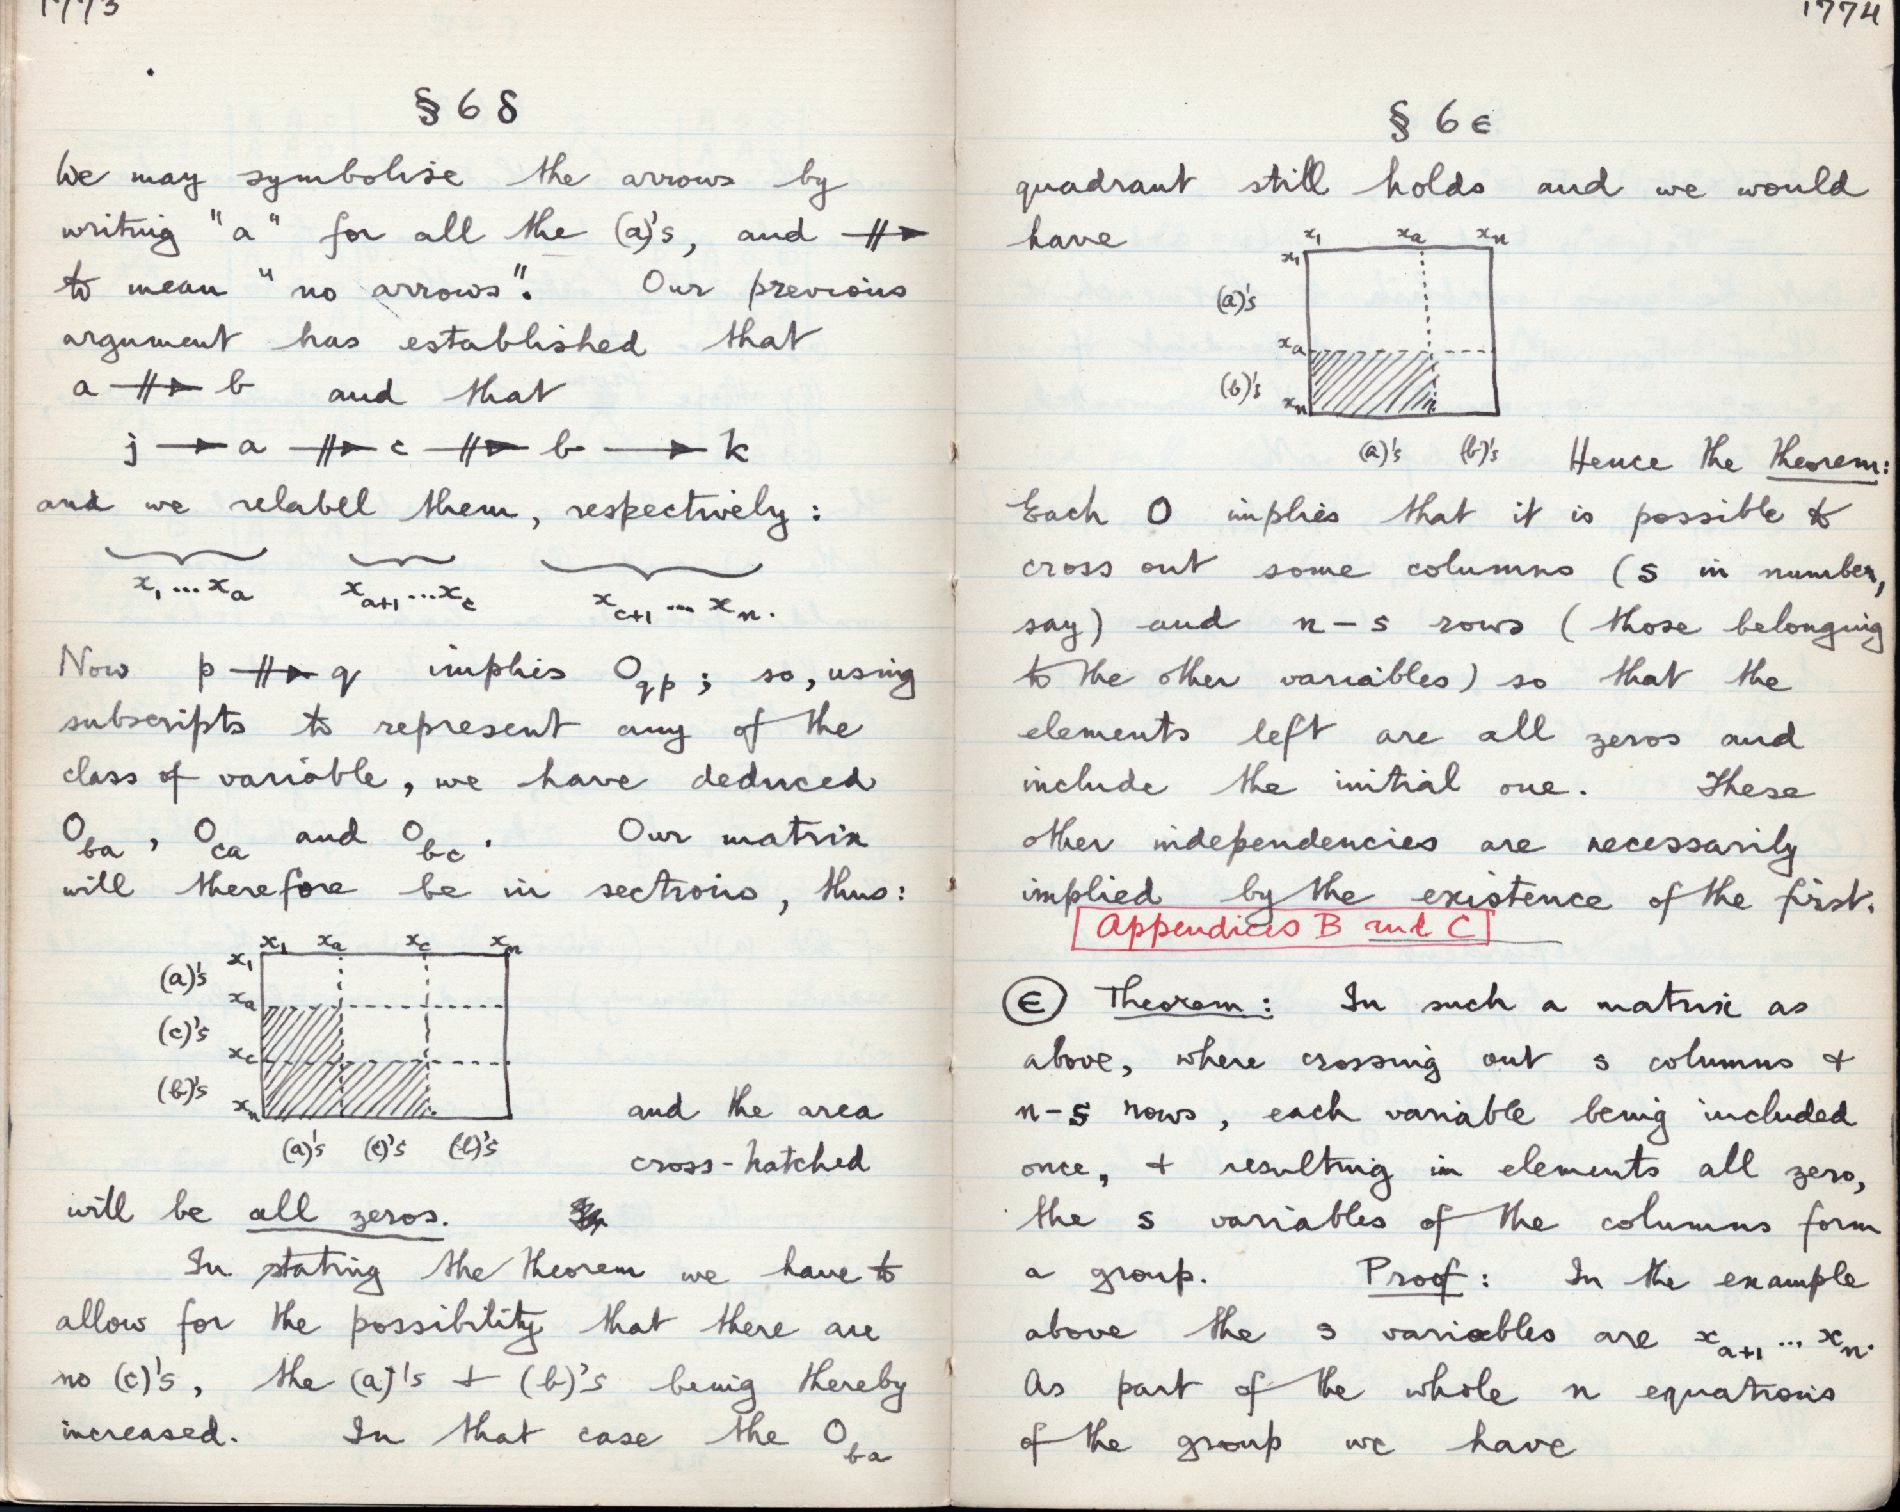 1773
§ 6 δ
We may symbolise the arrows by
writing "a" for all the (a)'s, and -||->
to mean "no arrows". Our previous
argument has established that
a -||-> b and that
j —> a -||-> c -||-> b —> k
and we relabel them, respectively:
x₁ ... xₐ x_{a+1} ... x_c x_{c+1} ... x_n.
Now p -||-> q implies O_{qp}; so, using
subscripts to represent any of the
class of variable, we have deduced
O_{ba}, O_{ca} and O_{bc}. Our matrix
will therefore be in sections, thus:
x₁ xₐ x_c x_n
x₁
(a)'s
xₐ
(c)'s
x_c
(b)'s
x_n
(a)'s (c)'s (b)'s
and the area
cross-hatched
will be all zeros.
In stating the theorem we have to
allow for the possibility that there are
no (c)'s, the (a)'s + (b)'s being thereby
increased. In that case the O_{ba}
1774
§ 6 ε
quadrant still holds and we would
have
x₁ xₐ x_n
x₁
(a)'s
xₐ
(b)'s
x_n
(a)'s (b)'s
Hence the theorem:
Each O implies that it is possible to
cross out some columns (s in number,
say) and n-s rows (those belonging
to the other variables) so that the
elements left are all zeros and
include the initial one. These
other independencies are necessarily
implied by the existence of the first.
Appendices B and C
ε Theorem: In such a matrix as
above, where crossing out s columns +
n-s rows, each variable being included
once, + resulting in elements all zero,
the s variables of the columns form
a group. Proof: In the example
above the s variables are x_{a+1} ... x_n.
As part of the whole n equations
of the group we have